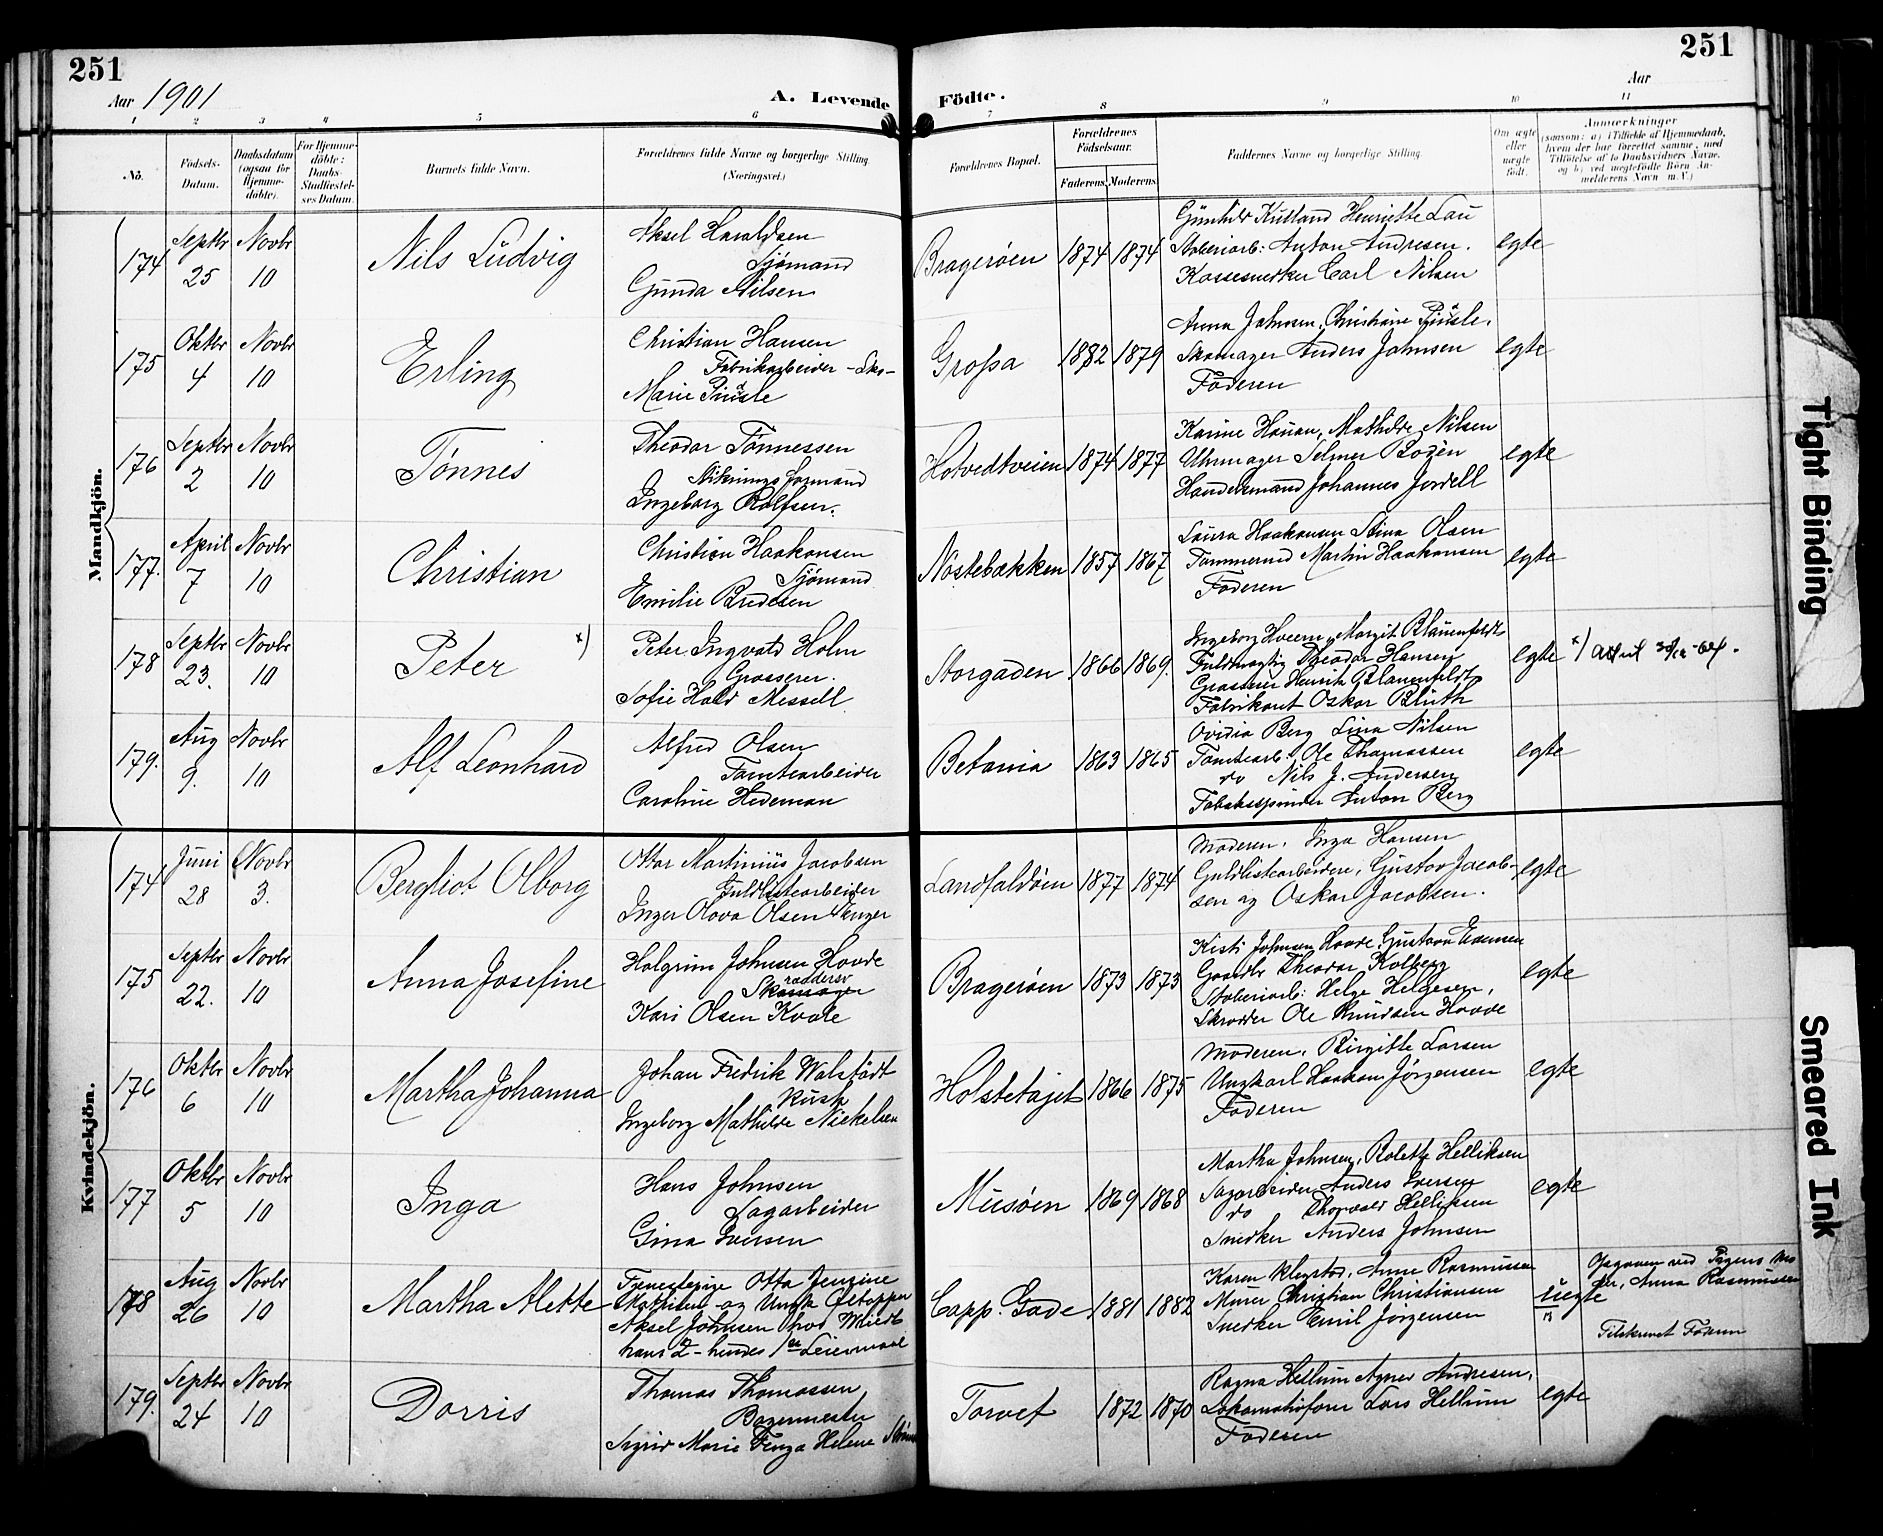 251
251
Aar 1901
A. Levende
Födte.
Aar
1 2 3 4 5 6 7 8 9 10 11
No.
Födsels-
Datum.
Daabsdatum
(ogsaa for
Hjemme-
döbte).
For Hjemme-
döbte:
Daabs-
Stadfæstel-
ses Datum.
Barnets fulde Navn.
Forældrenes fulde Navne og borgerlige Stilling
(Næringsvei.)
Forældrenes Bopæl.
Forældrenes
Födselsaar.
Faderens. Moderens.
Faddernes Navne og borgerlige Stilling.
Om ægte
eller
uægte
födt.
Anmærkninger
(saasom: a) i Tilfælde af Hjemmedaab,
hvem der har forrettet samme, med
Tilföielse af to Daabsvidners Navne,
og b) ved uægtefödte Börn An-
melderens Navn m. V.)
Mandkjön.
174
Septbr
25
Novbr
10
Nils Ludvig
Aksel Haraldsen
Sjømand
Gunda Nilsen
Bragerøen
1874
1874
Gunhild Henriette Lau
Anton Andresen.
Carl Nilsen
egte
175
Oktbr
4
Novbr
10
Erling
Christian Hansen
Fabrikarbeider -Sko-
Marie
Grossa
1882
1879
Anna Johnsen, Christiane
Skomager Anders Johnsen
Faderen
egte
176
Septbr
2
Novbr
10
Tønnes
Theodor Tønnessen
Formand
Ingeborg Rolfsen.
Hotvedtveien
1874
1877
Karine Hauan, Mathilde Nilsen
Uhrmager Selmer Bozén
Handelsmand Johannes Jordell
egte
177.
April
7
Novbr
10
Christian
Christian Haakonsen
Sjømand
Emilie Bredesen
Nøstebækken
1857
1867
Laura Haakonsen Stina Olsen
Tømmermd Martin Haakonsen
Faderen
egte
178
Septbr
23.
Novbr
10
Peter x)
Peter Ingvald Holm
Grosserer.
Sofie Hald Messell
Storgaden
1866
1869.
Ingeborg Hveem, Margit Blauenfeldt
Fuldmægtig Theodor Hansen
Grosserer Henrik Blauenfeldt
Fabrikant Oskar Bluth
egte
x)
179.
Aug
9.
Novbr
10
Alf Leonhard
Alfred Olsen
Tomtearbeider
Caroline Hedeman
Betania
1863
1865
Ovidia Berg Lina Nilsen
Tomtearb. Ole Thomassen
do Nils J. Andersen
Tobaksspinder Anton Berg
egte
Kvindekjön.
174
Juni
28
Novbr
3.
Bergliot Olborg
Ottar Martinius Jacobsen
Guldlistearbeider
Inger Olava Olsen
Landfaldøen
1877
1874
Moderen, Inga Hansen
Guldlistearbeidere, Gustav Jacob-
sen og Oskar Jacobsen.
egte
175
Septbr
22.
Novbr
10
Anna Josefine
Halgrim Johnsen Hovde
Skomager
Kari Olsen Kvale
Bragerøen
1873
1873
Kisti Johnsen Hovde, Gustava Evensen
Gaardbr Theodor Kolberg
Støberiarb: Helge Helgesen,
Skrædder Ole Knudsen Hovde
egte
176
Oktbr
6
Novbr
10
Martha Johanna
Johan Fredrik Walstadt
Kusk
Ingeborg Mathilde Nickelsen
Holstetajet
1866
1875
Moderen, Birgitte Larsen
Ungkarl Haakon Jørgensen
Faderen
egte
177
Oktbr
5
Novbr
10
Inga
Hans Johnsen
Sagarbeider
Gina Iversen
Musøen
1869
1868
Martha Johnsen, Rolette Helliksen
Sagarbeider Anders Iversen
do Thorvald Helliksen
Snedker Anders Johnsen
egte
178
Aug
26
Novbr
10
Martha Alette
Tjenestepige Otta Jensine
og Ungk Øltapper
Aksel Johnsen
hans 2- hendes 1ste Leiermaal
Capp. Gade
1881
1882
Karen Klegstad, Anne Rasmussen
Murer Christian Christiansen
Snedker Emil Jørgensen
uegte
Opgaven ved Pigens Mo
der, Anna Rasmussen
179.
Septbr
24
Novbr
10
Dorris
Thomas Thomassen
Bagermester
Sigrid Marie Helene
Torvet
1872
1870
Ragna Hellum Agnes Andresen,
Lokomotivfører Lars Hellum
Faderen
egte
Tight Binding
Smeared Ink